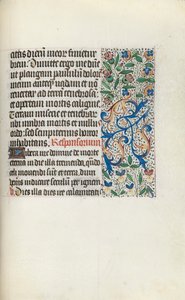 citas dierū meor finietur
breui. Dimitte ergo me dñe
ut plangam paululū dolorē
meum anteq̄ vadam et nō
reuertar ad terrā tenebrosā
et opertam mortis caligīe
Terram miserie et tenebrar
ubi umbra mortis et nullus
ordo sed sempiternus horror
inhabitans. Responsorium
Libera me domine de morte
eterna in die illa tremenda, quādo
celi mouendi sunt et terra, dum
veneris iudicare seculum per ignem
Dies illa dies ire calamitatis